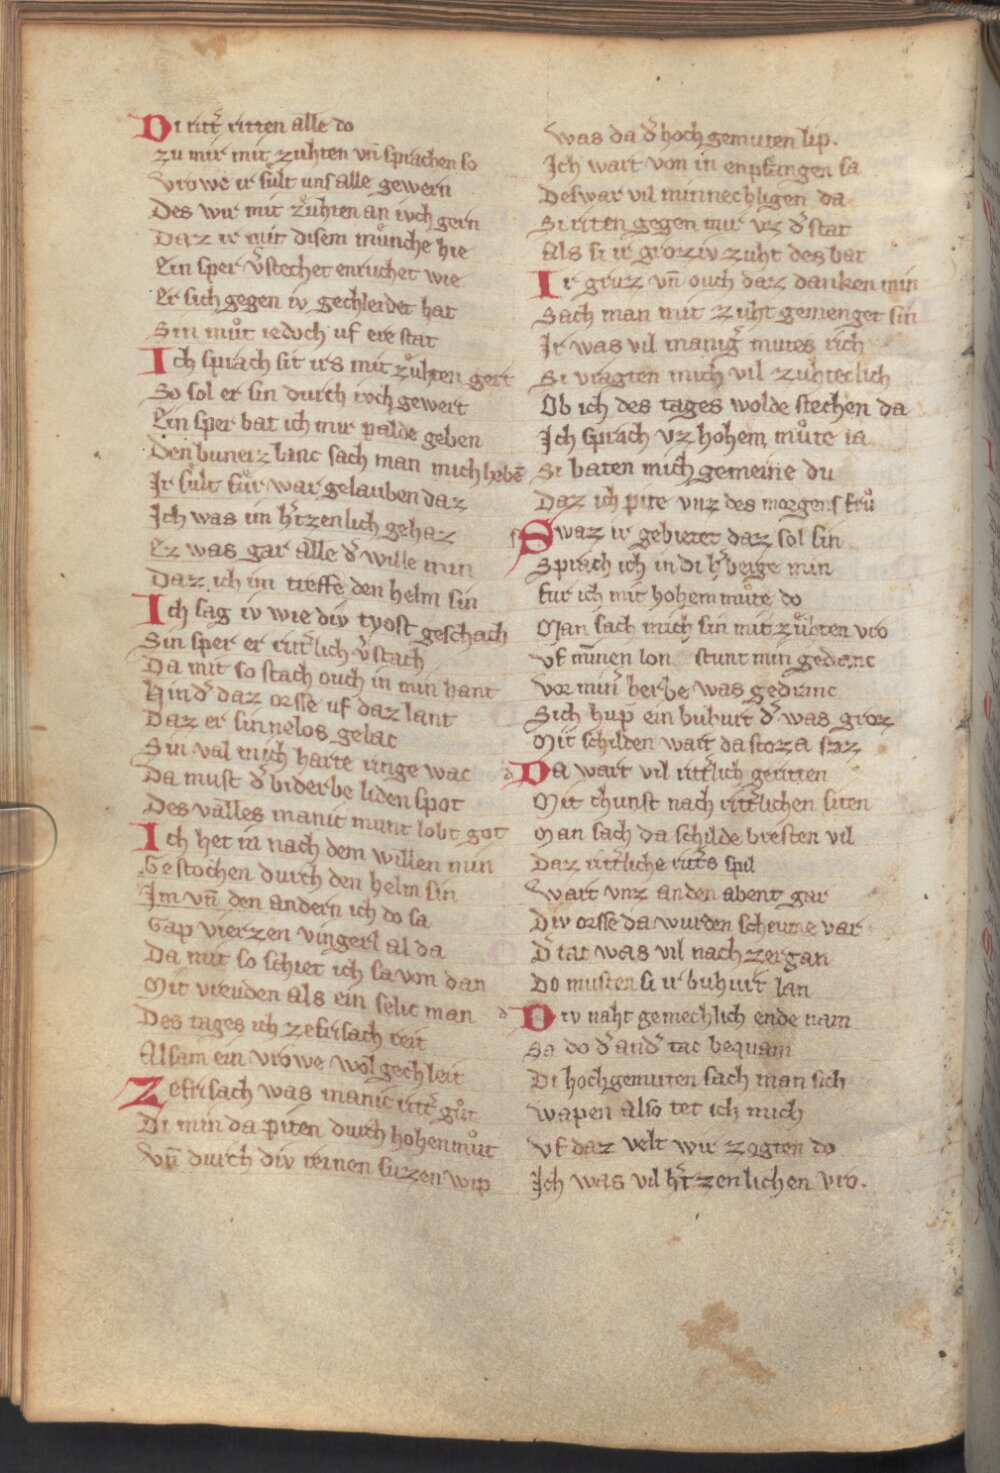 Di ritt̄ ritten alle do
zu mir mit zuhten vn̄ sprachen so
Vrowe ir sult uns alle gewern
Des wir mit zuhten an ivch gern
Daz ir mit disem muͦnche hie
Ein sper v̄stechet enruchet wie
Er sich gegen iv gechleidet hat
Sin muͦt iedoch uf ere stat
Ich sprach sit irs mit zuͦhten gert
So sol er sin durch ivch gewert
Ein sper bat ich mir palde geben
Den buneiz linc sach man mich hebē
Ir sult fuͦr war gelauben daz
Ich was im h̄tzenlich gehaz
Ez was gar alle d̄ wille min
Daz ich im treffe den helm sin
Ich sag iv wie div tyost geschach
Sin sper er ritt̄lich v̄stach
Da mit so stach ouch in min hant
Hind̄ daz orsse uf daz lant
Daz er sinnelos gelac
Sin val mich harte ringe wac
Da must d̄ biderbe liden spot
Des valles manic munt lobt got
Ich het in nach dem willen min
Gestochen durch den helm sin
Im vn̄ den andern ich do sa
Gap vierzen vingerl al da
Da mit so schiet ich sa von dan
Mit vreuden als ein selic man
Des tages ich ze frisach reit
Alsam ein vrowe wol gechleit
Ze frisach was manic ritt̄ guͦt
Di min da piten durch hohen muͦt
Vn̄ durch div reinen suzen wip
Was da d̄ hoch gemuten lip.
Ich wart von in enpfangen sa
Deswar vil minnechligen da
Si riten gegen mir vz d̄ stat
Als si ir groziv zuht des bat
Ir gruz vn̄ ouch daz danken min
Sach man mit zuht gemenget sin
Ir was vil maniḡ mutes rich
Si vragten mich vil zuͦhteclich
Ob ich des tages wolde stechen da
Ich sprach vz hohem muͦte ia
Si baten mich gemeine du
Daz ich pite vnz des morgens fruͦ
Swaz ir gebietet daz sol sin
Sprach ich in di h̄berge min
fur ich mit hohem muͦte do
Man sach mich sin mit zuͦhten vro
Vf minnen lon stunt min gedanc
Vor min̄ berbe was gedranc
Sich hup ein buhurt d̄ was groz
Mit schilden wart da stoza stoz
Da wart vil ritt̄lich geritten
Mit chunst nach ritt̄lichen siten
Man sach da schilde bresten vil
Daz ritt̄liche ritt̄s spil
Wart vnz an den abent gar
Div orsse da wurden scheume var
D̄ tac was vil nach zergan
Do musten si ir buhurt lan
Div naht gemechlich ende nam
Sa do d̄ and̄ tac bequam
Di hochgemuten sach man sich
Wapen also tet ich mich
Vf daz velt wir zogten do
Ich was vil h̄tzenlichen vro.